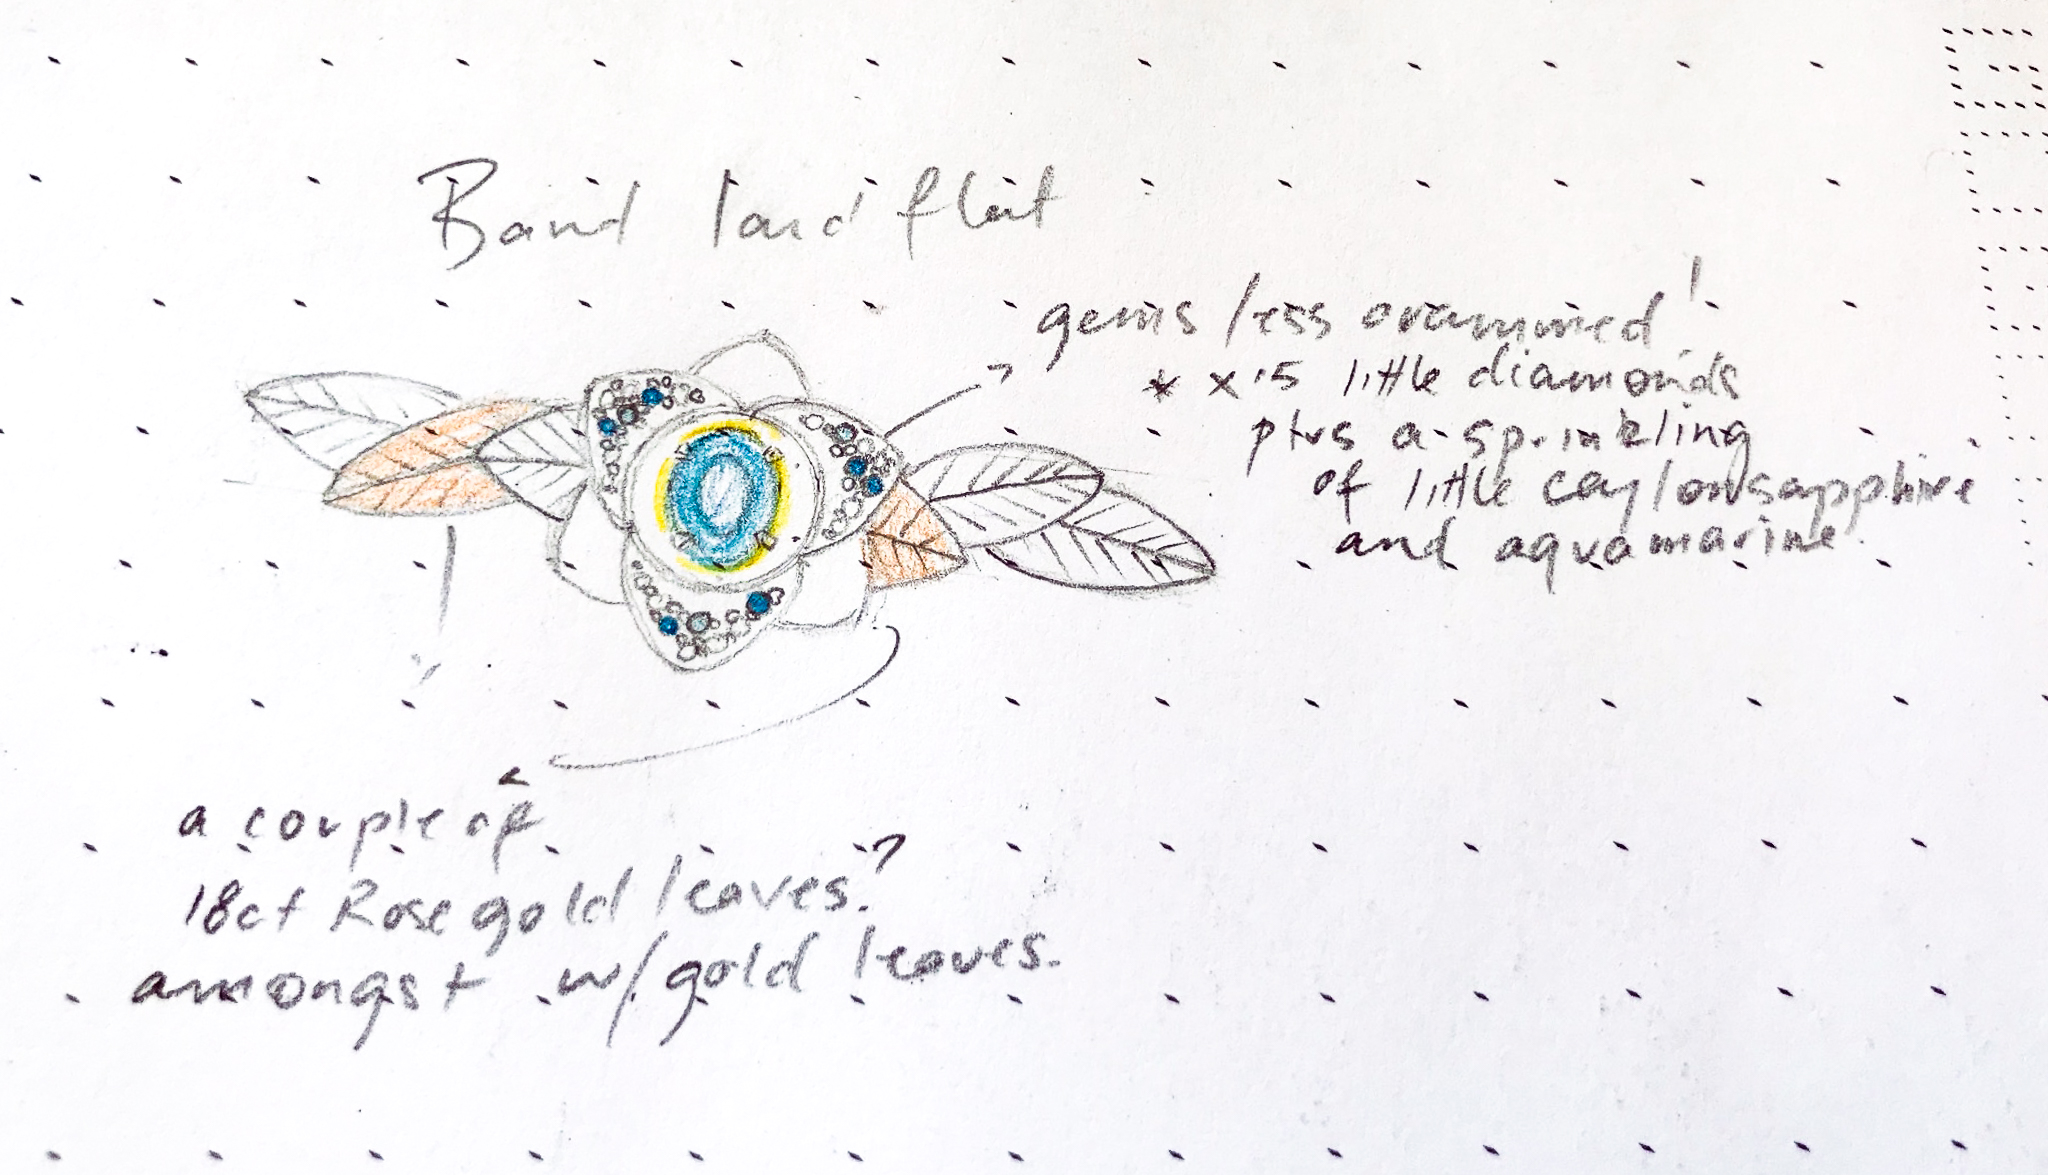 Band laid flat
gems less crammed!
* x 15 little diamonds
plus a sprinkling
of little ceylon sapphire
and aquamarine.
a couple of
18ct Rose gold leaves?
amongst w/gold leaves.